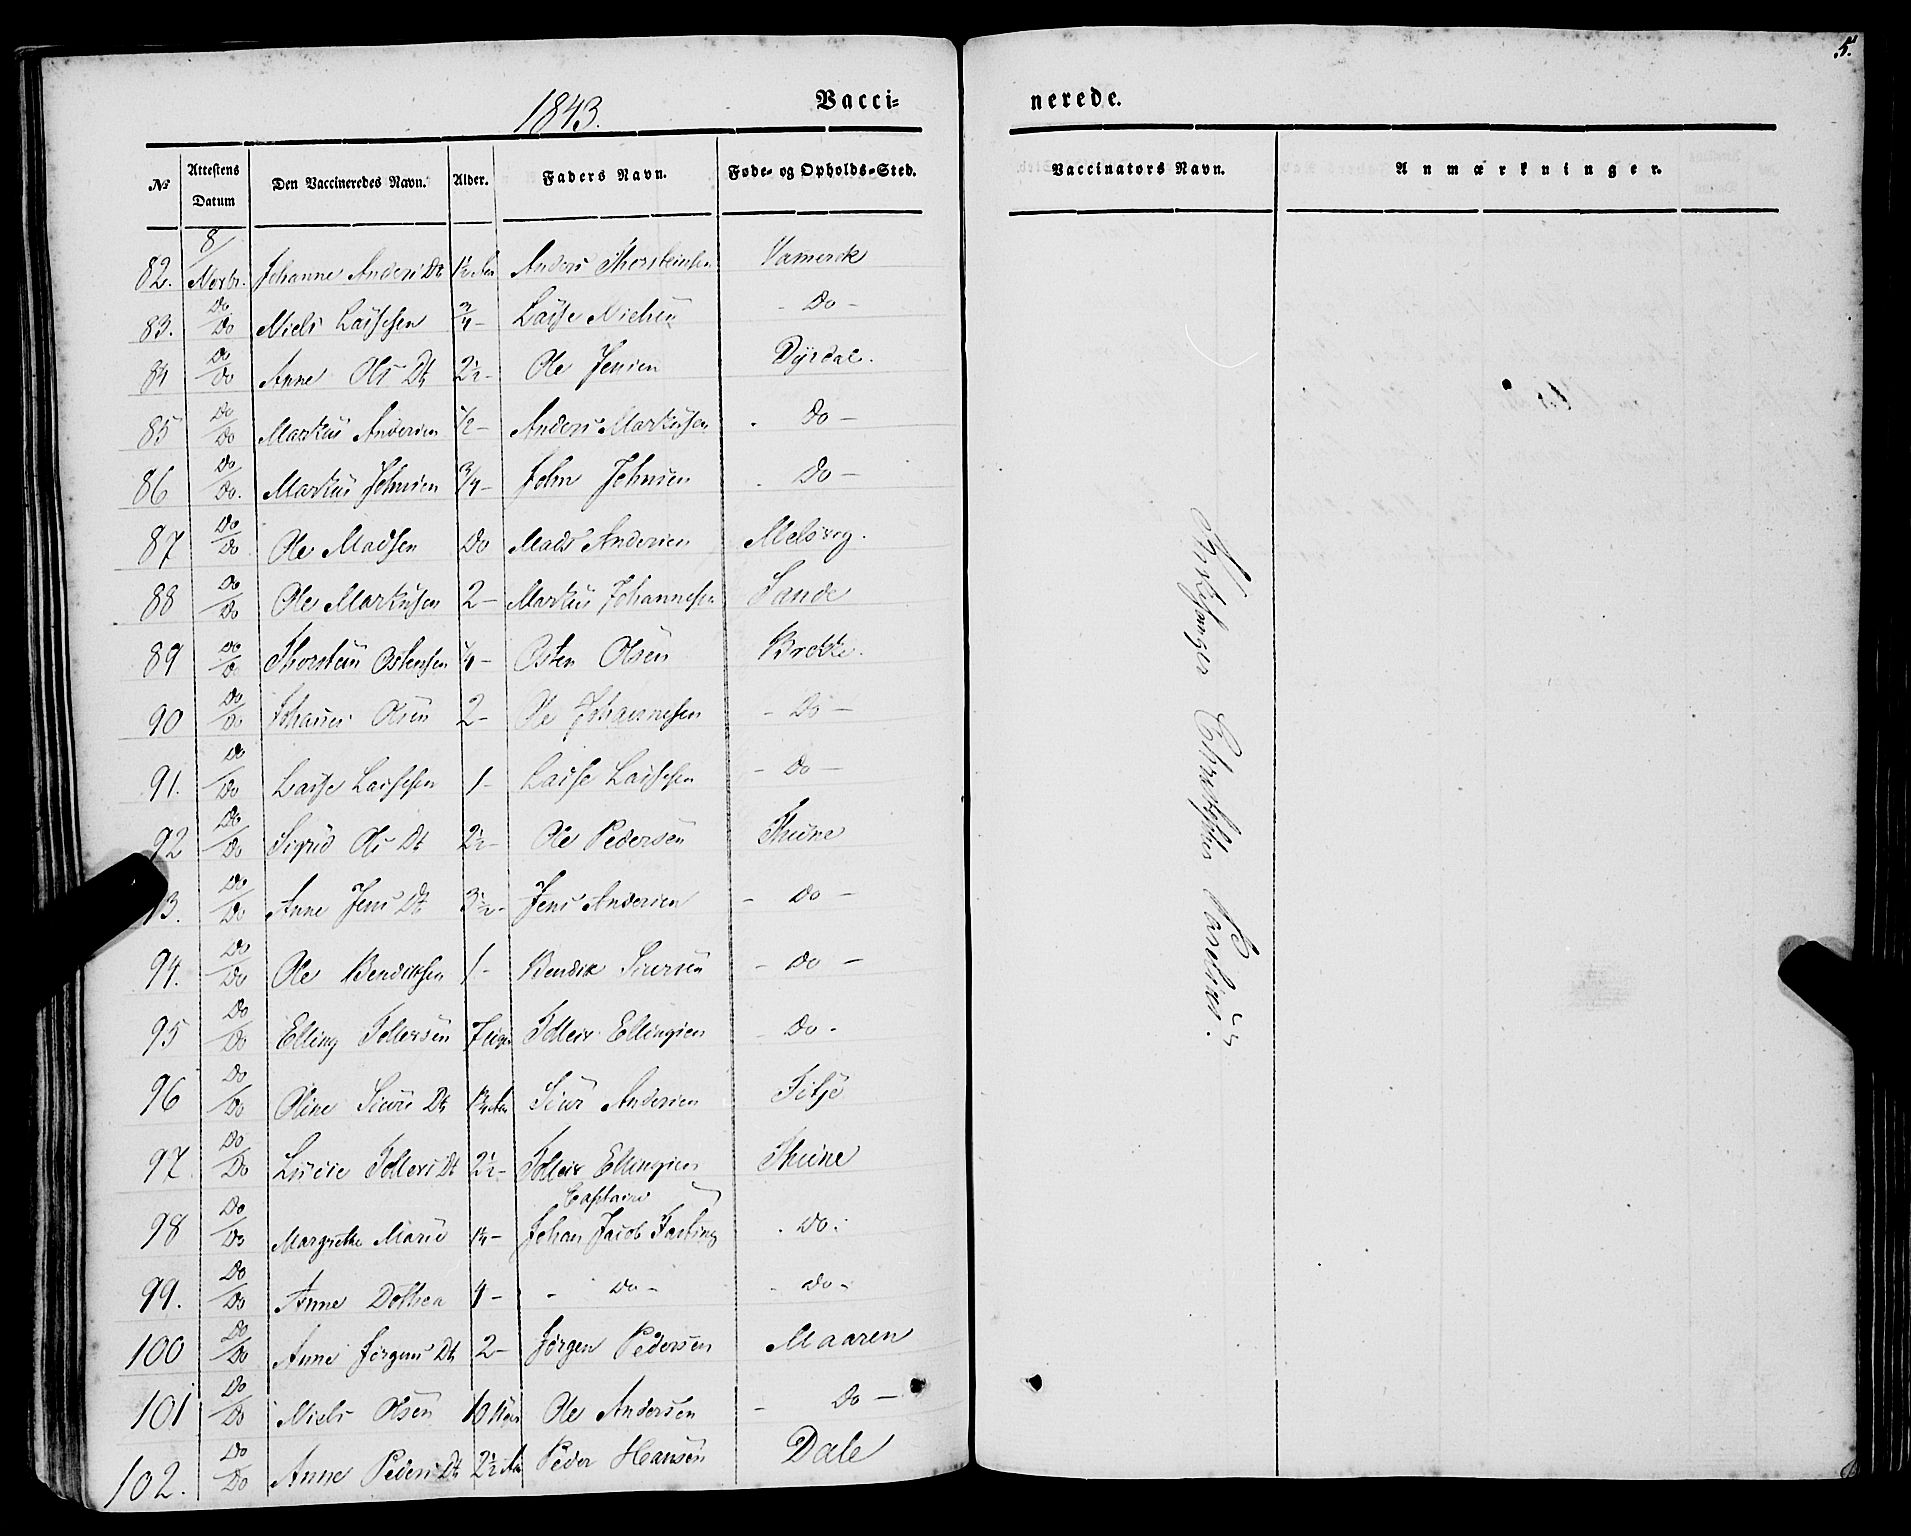 5.
1843.
Vacci-
nerede.
№ Attestens Datum Den Vaccineredes Navn. Alder. Faders Navn. Føde- og Opholds-Sted.
Vaccinators Navn. Anmærkninger.
82. 8/Novbr. Johanne Anders Dt 1½ Aar Anders Thorsteinsen Vamerek
83. Do/Do Niels Lassesen ¾ - Lasse Nielsen - Do -
84 Do/Do Anne Ols Dt 2½ - Ole Jensen Dyrdal.
85 Do/Do Markus Andersen ½ - Anders Markusen . Do -
86 Do/Do. Markus Johnsen ¾ - John Johnsen . Do -
87 Do/Do Ole Madsen Do Mads Andersen Melsvig.
88 Do/Do Ole Markusen 2 - Markus Johannesen Sande
89 Do/Do Thorstein Ostensen ¼ - Osten Olsen Brekke.
90 Do/Do Johannes Olsen 2 - Ole Johannesen - Do -
91. Do/Do Lasse Lassesen 1 - Lasse Lassesen - Do -
92 Do/Do Sigrid Ols Dt 2½ - Ole Pedersen Thune
93. Do/Do Anne Jens Dt 3½ - Jens Andersen - Do -
94. Do/Do Ole Bendiksen 1 - Bendix Siursen - Do -
95 Do/Do Elling Tollersen 7 Uger Tolleiv Ellingsen - Do -
96 Do/Do Oline Siurs Dt 1¼ Aar Siur Andersen Titje
97. Do/Do Lucie Tollers Dt 2½ - Tolleiv Ellingsen Thune
98 Do/Do Margrethe Marie 1¼ - Captain Johan Jacob Fasting . Do .
99. Do/Do Anne Dothea 4 - - Do - - Do -
100 Do/Do Anne Jørgens Dt 2 - Jørgen Pedersen Maaren
101 Do/Do Niels Olsen 10 Uger Ole Andersen - Do -
102. Do/Do Anne Peders Dt 2½ Aar Peder Hansen Dale
Kirkesanger Christopher